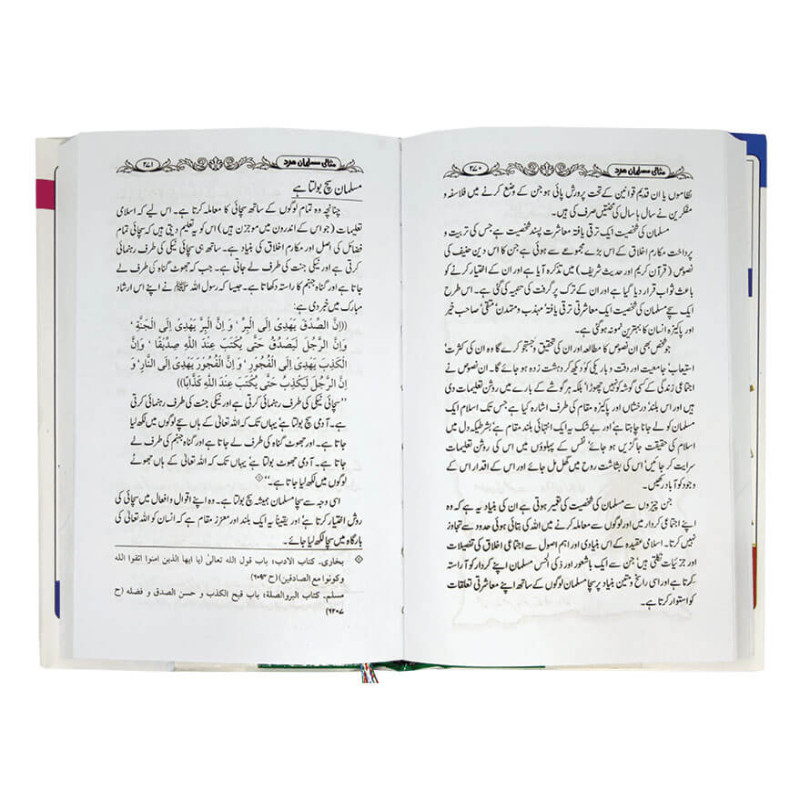 مثالی مسلمان مرد ۲۷۰
نظاموں یا ان قدیم قوانین کے تحت پرورش پائی ہو جن کے وضع کرنے میں فلاسفہ و
مفکرین نے سال ہا سال کی محنتیں صرف کی ہیں۔
مسلمان کی شخصیت ایک ترقی یافتہ معاشرت پسند شخصیت ہے جس کی تربیت و
پرداخت مکارم اخلاق کے اس بڑے مجموعے سے ہوئی ہے جن کا اس دین حنیف کی
نصوص (قرآن کریم اور حدیث شریف) میں تذکرہ آیا ہے اور ان کے اختیار کرنے کو
باعث ثواب قرار دیا گیا ہے اور ان کے ترک پر گرفت کی تنبیہ کی گئی ہے۔ اس طرح
ایک سچے مسلمان کی شخصیت ایک معاشرتی ترقی یافتہ‘ مہذب و متمدن‘ متقی‘ صاحب خیر
اور پاکیزہ انسان کا بہترین نمونہ ہو گئی ہے۔
جو شخص بھی ان نصوص کا مطالعہ اور ان کی تحقیق و جستجو کرے گا وہ ان کی کثرت‘
استیعاب‘ جامعیت اور باریکی کو دیکھ کر دہشت زدہ ہو جائے گا۔ ان جامع نصوص نے
اجتماعی زندگی کے کسی گوشہ کو نہیں چھوڑا‘ بلکہ ہر گوشے کے بارے میں روشن تعلیمات دی
ہیں اور اس بلند‘ درخشاں اور پاکیزہ مقام کی طرف اشارہ کیا ہے جس تک اسلام ایک
مسلمان کو لے جانا چاہتا ہے‘ اور بے شک یہ ایک انتہائی بلند مقام ہے‘ بشرطیکہ دل میں
اسلام کی حقیقت جاگزیں ہو جائے‘ نفس کے پہلوؤں میں اس کی روشن تعلیمات
سرایت کر جائیں‘ اس کی بشاشت روح میں گھل مل جائے اور اس کے اقدار اس کے
وجود کو آباد رکھیں۔
جن چیزوں سے مسلمان کی شخصیت کی تعمیر ہوتی ہے ان کی بنیاد یہ ہے کہ وہ
اپنے اجتماعی کردار میں اور لوگوں سے معاملہ کرنے میں اللہ کی بتائی ہوئی حدود سے تجاوز
نہیں کرتا۔ اسلامی عقیدہ کے اس بنیادی اور اہم اصول سے اجتماعی اخلاق کی تفصیلات
اور جزئیات نکلتی ہیں‘ جن سے ایک باشعور اور ذکی الحس مسلمان اپنے کردار کو آراستہ
رکھتا ہے اور اسی راسخ و متین بنیاد پر سچا مسلمان لوگوں کے ساتھ اپنے معاشرتی تعلقات
کو استوار کرتا ہے۔
مثالی مسلمان مرد ۲۷۱
مسلمان سچ بولتا ہے
چنانچہ وہ تمام لوگوں کے ساتھ سچائی کا معاملہ کرتا ہے۔ اس لیے کہ اسلامی
تعلیمات (جو اس کے اندرون میں موجزن ہیں) اس کو یہ تعلیم دیتی ہیں کہ سچائی تمام
فضائل کی اصل اور مکارم اخلاق کی بنیاد ہے۔ ساتھ ہی سچائی نیکی کی طرف رہنمائی
کرتی ہے اور نیکی جنت کی طرف لے جاتی ہے۔ جب کہ جھوٹ گناہ کی طرف لے
جاتا ہے اور گناہ جہنم کا راستہ دکھاتا ہے۔ جیسا کہ رسول اللہ ﷺ نے اپنے اس ارشاد
مبارک میں خبر دی ہے:
((اِنَّ الصِّدْقَ يَهْدِىْ اِلَى الْبِرِّ ‘ وَ اِنَّ الْبِرَّ يَهْدِىْ اِلَى الْجَنَّةِ ‘
وَ اِنَّ الرَّجُلَ لَيَصْدُقُ حَتّٰى يُكْتَبَ عِنْدَ اللّٰهِ صِدِّيْقًا ‘ وَاِنَّ
الْكَذِبَ يَهْدِىْ اِلَى الْفُجُوْرِ‘ وَ اِنَّ الْفُجُوْرَ يَهْدِىْ اِلَى النَّارِ‘ وَ
اِنَّ الرَّجُلَ لَيَكْذِبُ حَتّٰى يُكْتَبَ عِنْدَ اللّٰهِ كَذَّابًا))
”سچائی نیکی کی طرف رہنمائی کرتی ہے اور نیکی جنت کی طرف لے
جاتا ہے۔ آدمی سچ بولتا ہے‘ یہاں تک کہ اللہ تعالیٰ کے ہاں سچے لوگوں میں لکھ لیا
جاتا ہے۔ اور جھوٹ گناہ کی طرف لے جاتا ہے اور گناہ جہنم کی طرف لے
جاتا ہے۔ آدمی جھوٹ بولتا ہے‘ یہاں تک کہ اللہ تعالیٰ کے ہاں جھوٹے
لوگوں میں لکھ لیا جاتا ہے۔“
اسی وجہ سے سچا مسلمان ہمیشہ سچ بولتا ہے۔ وہ اپنے اقوال و افعال میں سچائی کی
روش اختیار کرتا ہے‘ اور یقیناً یہ ایک بلند اور معزز مقام ہے کہ انسان کو اللہ تعالیٰ کی
بارگاہ میں سچا لکھ لیا جائے۔
بخاری۔ کتاب الادب: باب قول الله تعالىٰ (يا ايها الذين امنوا اتقوا الله
وكونوا مع الصادقين) (ح ۶۰۹۴)
مسلم۔ كتاب البرو الصلة: باب قبح الكذب و حسن الصدق و فضله (ح
۲۶۰۷)